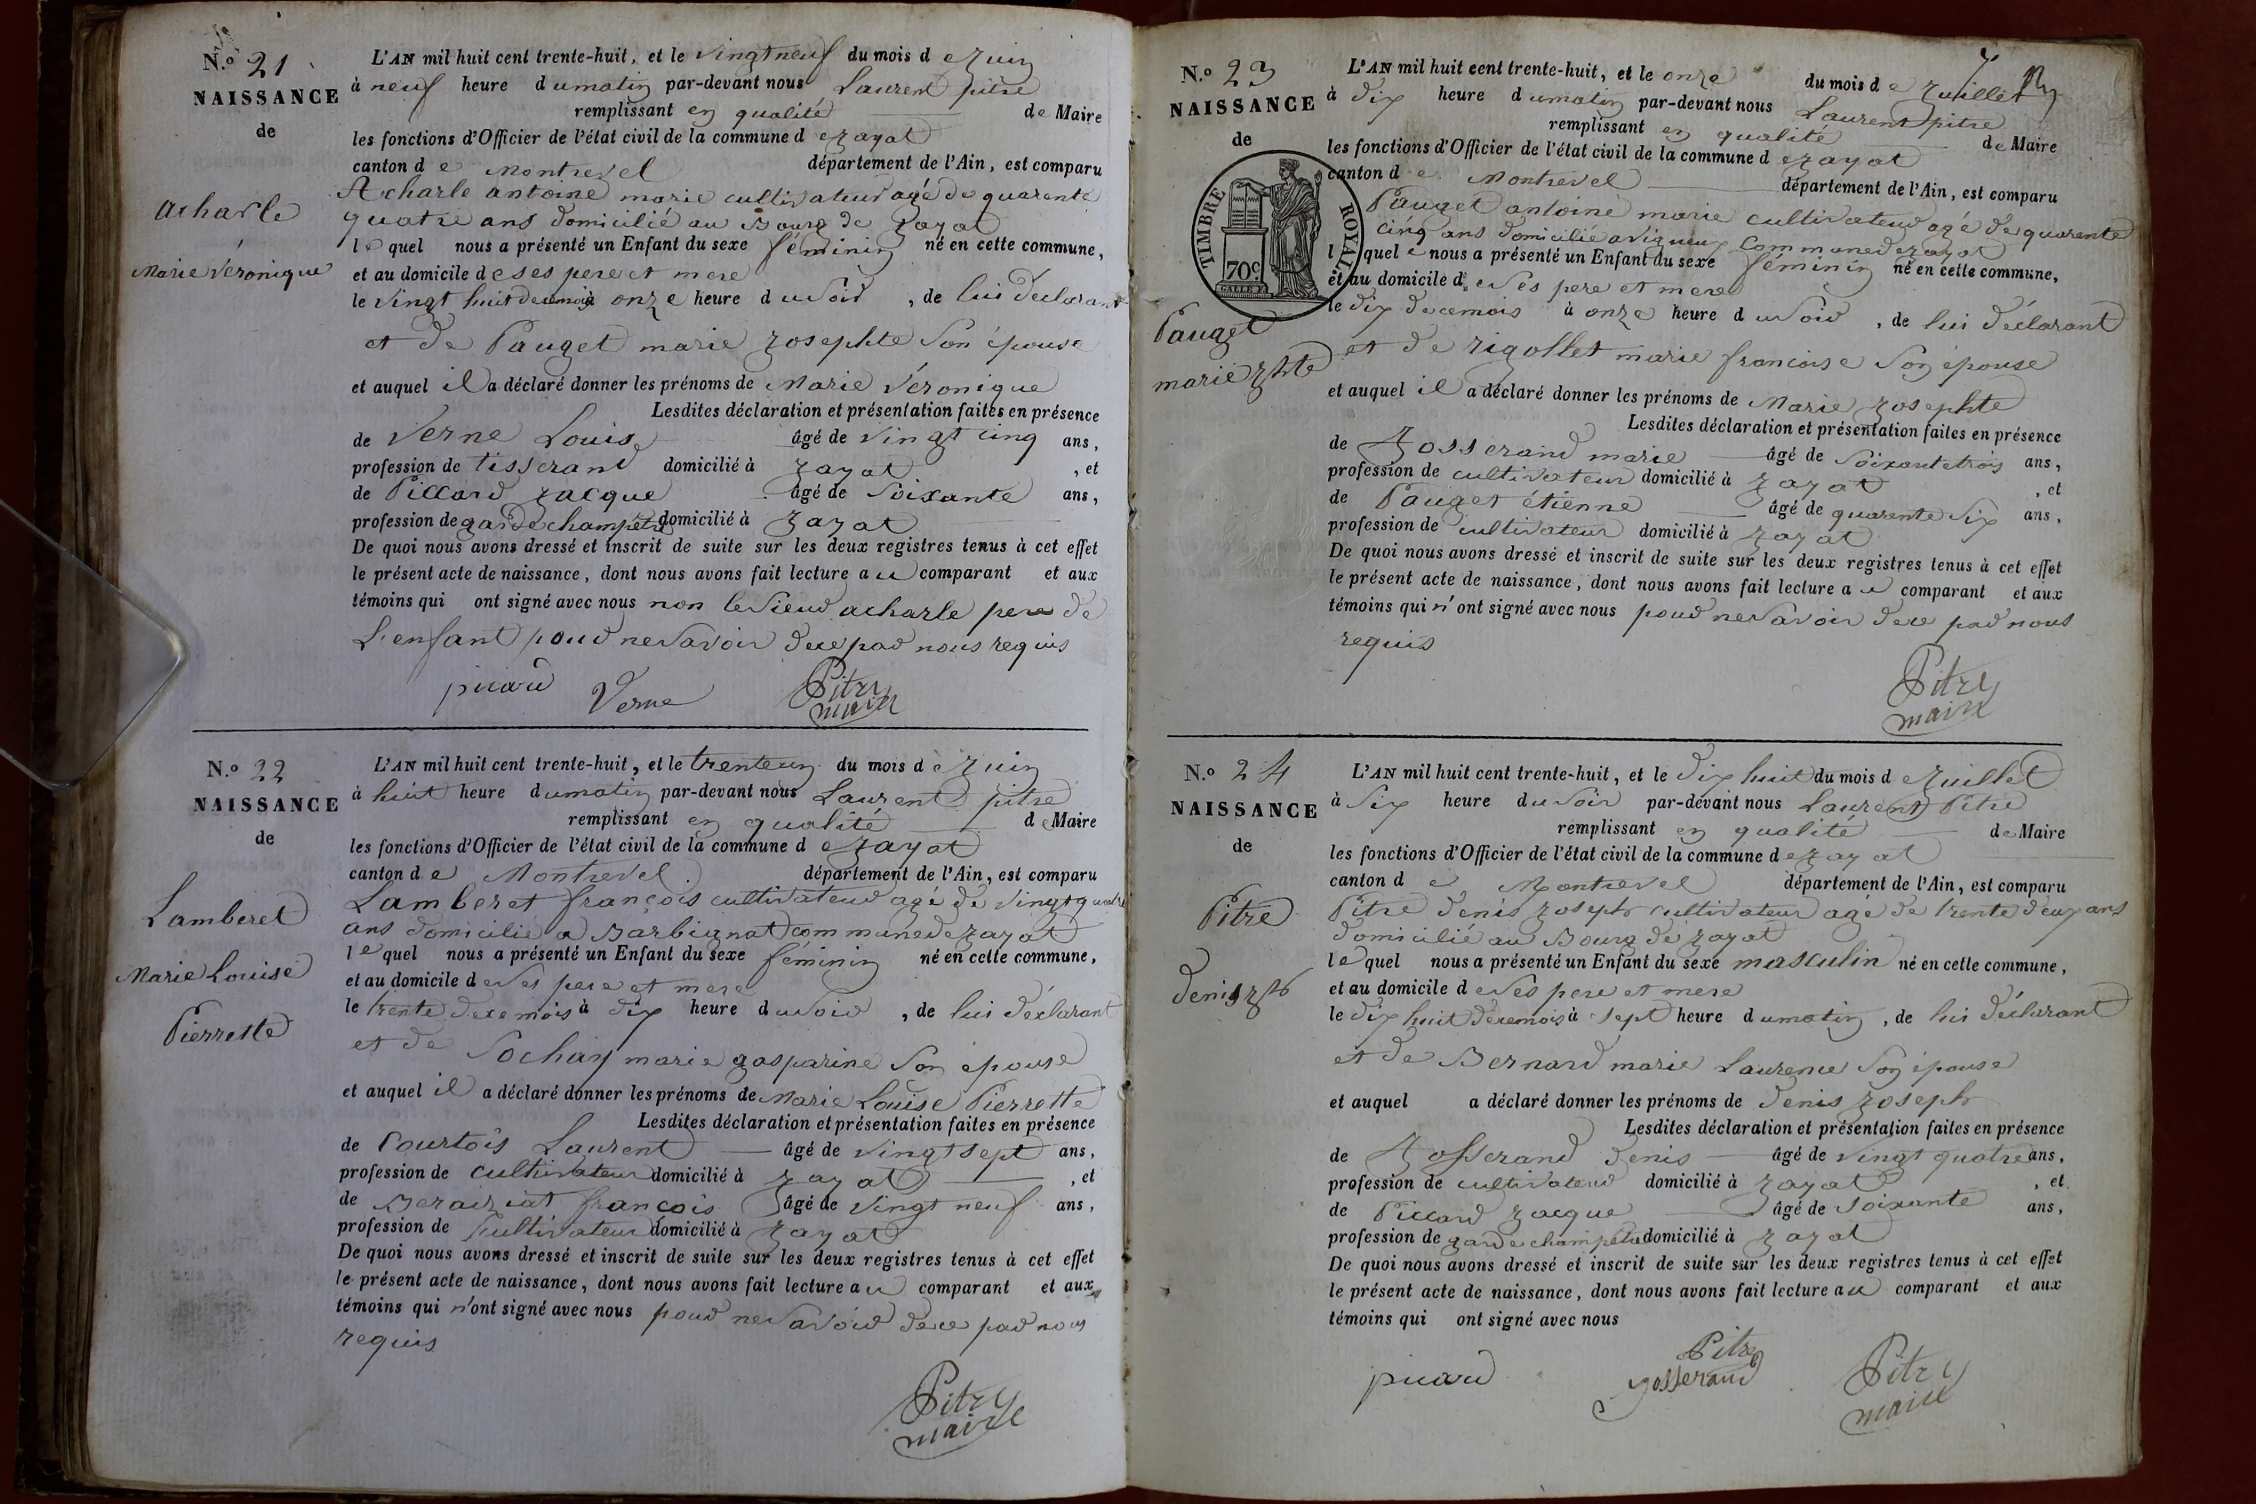 N.o 21
NAISSANCE
de
acharle
Marie Véronique
L'AN mil huit cent trente-huit, et le vingt neuf du mois de juin
à neuf heure du matin par-devant nous Laurent pitre
remplissant en qualité de Maire
les fonctions d'Officier de l'état civil de la commune de jayat
canton de Montrevel département de l'Ain, est comparu
Acharle antoine marie cultivateur agé de quarente
quatre ans domicilié au Bourg de jayat
lequel nous a présenté un Enfant du sexe féminin né en cette commune,
et au domicile de ses pere et mere
le vingt huit de ce mois à onze heure du soir, de lui déclarant
et de Pauget marie josephte son épouse
et auquel il a déclaré donner les prénoms de Marie Véronique
Lesdites déclaration et présentation faites en présence
de Verne Louis âgé de vingt cinq ans,
profession de tisserand domicilié à jayat, et
de Piccard jacque âgé de soixante ans,
profession de garde champetre domicilié à jayat
De quoi nous avons dressé et inscrit de suite sur les deux registres tenus à cet effet
le présent acte de naissance, dont nous avons fait lecture au comparant et aux
témoins qui ont signé avec nous non le sieur acharle pere de
L'enfant pour ne savoir de ce par nous requis
picard Verne Pitre
maire
N.o 22
NAISSANCE
de
Lamberet
Marie Louise
Pierrette
L'AN mil huit cent trente-huit, et le trente un du mois de juin
à huit heure du matin par-devant nous Laurent pitre
remplissant en qualité de Maire
les fonctions d'Officier de l'état civil de la commune de jayat
canton de Montrevel. département de l'Ain, est comparu
Lamberet françois cultivateur agé de vingt quatre
ans domicilié a Barbignat commune de jayat
lequel nous a présenté un Enfant du sexe féminin né en cette commune,
et au domicile de ses pere et mere
le trente de ce mois à dix heure du soir, de lui déclarant
et de Sochay marie gasparine son épouse
et auquel il a déclaré donner les prénoms de Marie Louise Pierrette
Lesdites déclaration et présentation faites en présence
de Courtois Laurent âgé de vingt sept ans,
profession de cultivateur domicilié à jayat, et
de françois âgé de vingt neuf ans,
profession de cultivateur domicilié à jayat
De quoi nous avons dressé et inscrit de suite sur les deux registres tenus à cet effet
le présent acte de naissance, dont nous avons fait lecture au comparant et aux
témoins qui n'ont signé avec nous pour ne savoir de ce par nous
requis
Pitre
maire
7
N.o 23
NAISSANCE
de
TIMBRE ROYAL
70c
Pauget
marie jphte
L'AN mil huit cent trente-huit, et le onze du mois de juillet
à dix heure du matin par-devant nous Laurent pitre
remplissant en qualité de Maire
les fonctions d'Officier de l'état civil de la commune de jayat
canton de Montrevel département de l'Ain, est comparu
Pauget antoine marie cultivateur agé de quarente
cinq ans domicilié a vigneux commune de jayat
lequel nous a présenté un Enfant du sexe féminin né en cette commune,
et au domicile de ses pere et mere
le dix de ce mois à onze heure du soir, de lui déclarant
et de rigollet marie francoise son épouse
et auquel il a déclaré donner les prénoms de Marie josephte
Lesdites déclaration et présentation faites en présence
de josserand marie âgé de soixante trois ans,
profession de cultivateur domicilié à jayat, et
de Pauget étienne âgé de quarente six ans,
profession de cultivateur domicilié à jayat
De quoi nous avons dressé et inscrit de suite sur les deux registres tenus à cet effet
le présent acte de naissance, dont nous avons fait lecture au comparant et aux
témoins qui n'ont signé avec nous pour ne savoir de ce par nous
requis
Pitre
maire
N.o 24
NAISSANCE
de
Pitre
denis jph
L'AN mil huit cent trente-huit, et le dix huit du mois de juillet
à six heure du soir par-devant nous Laurent Pitre
remplissant en qualité de Maire
les fonctions d'Officier de l'état civil de la commune de jayat
canton de Montrevel département de l'Ain, est comparu
Pitre denis joseph cultivateur agé de trente deux ans
domicilié au Bourg de jayat
lequel nous a présenté un Enfant du sexe masculin né en cette commune,
et au domicile de ses pere et mere
le dix huit de ce mois à sept heure du matin, de lui déclarant
et de Bernard marie Laurence son épouse
et auquel a déclaré donner les prénoms de denis joseph
Lesdites déclaration et présentation faites en présence
de josserand denis âgé de vingt quatre ans,
profession de cultivateur domicilié à jayat, et
de Piccard jacque âgé de soixante ans,
profession de garde champetre domicilié à jayat
De quoi nous avons dressé et inscrit de suite sur les deux registres tenus à cet effet
le présent acte de naissance, dont nous avons fait lecture au comparant et aux
témoins qui ont signé avec nous
Pitre
picard josserand Pitre
maire